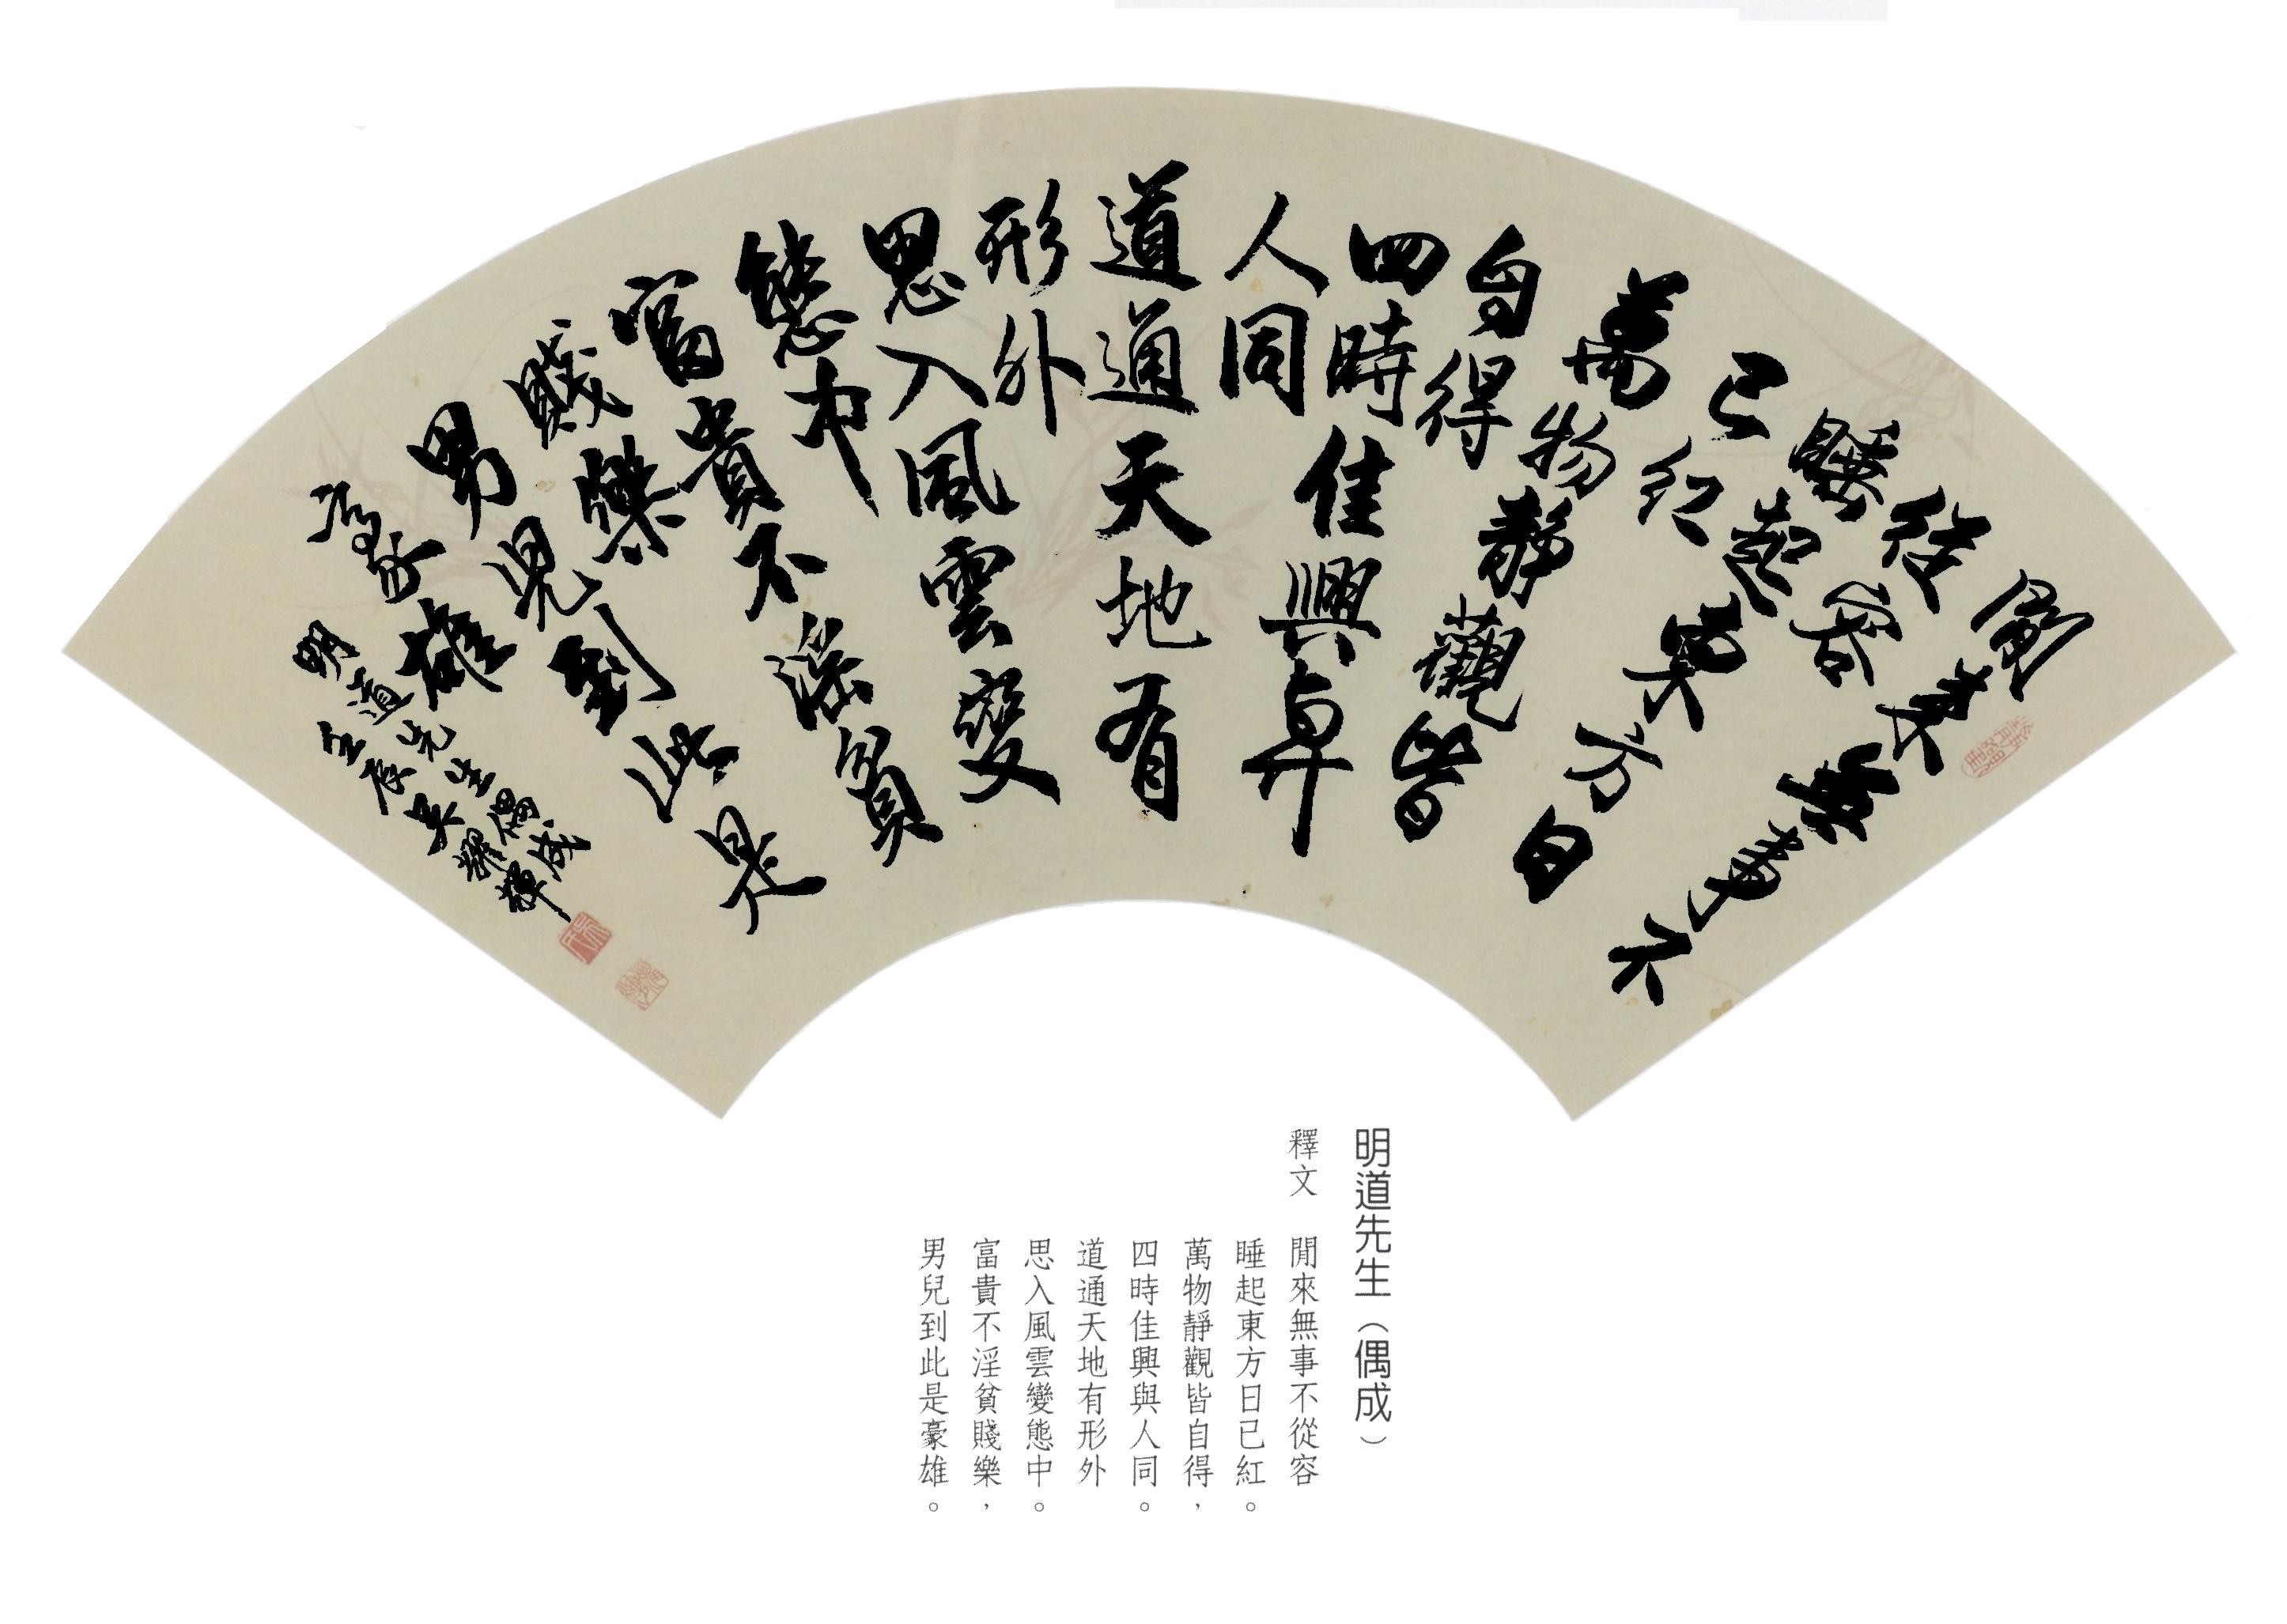 閒來無事不
從容
睡起東方日
已紅
萬物靜觀皆
自得
四時佳興與
人同
道通天地有
形外
思入風雲變
態中
富貴不淫貧
賤樂
男兒到此是
豪雄
明道先生偶成
壬辰吳耀輝
明道先生（偶成）
釋文　閒來無事不從容
睡起東方日已紅。
萬物靜觀皆自得，
四時佳興與人同。
道通天地有形外
思入風雲變態中。
富貴不淫貧賤樂，
男兒到此是豪雄。